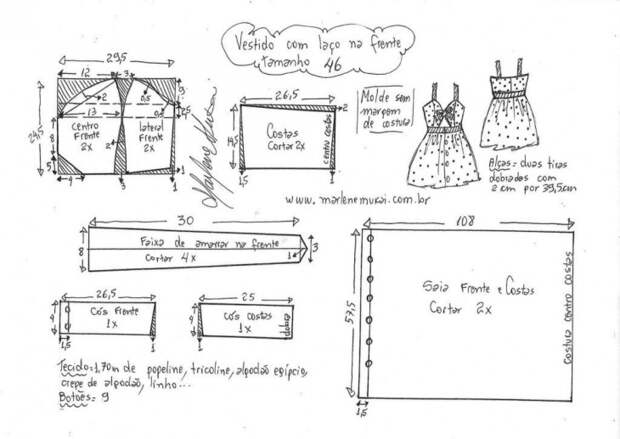 Vestido com laço na frente
tamanho 46
29,5
12
3
2
9
0,5
2,5
24,5
13
8
5
4
3
1
2
centro
Frente
2x
lateral
Frente
2x
Marlene Mukai
26,5
2
Costas
Cortar 2x
centro costas
1
Molde sem
margem
de costura
Alças= duas tiras
dobradas com
2 cm por 39,5cm
www.marlenemukai.com.br
30
8
Faixa de amarrar na frente
Cortar 4x
1
3
26,5
4
Cós Frente
1x
1,5
1
25
4
Cós costas
1x
dobra
1
108
57,5
Saia Frente e Costas
Cortar 2x
Costura centro costas
1,5
Tecido=1,70m de popeline, tricoline, algodão egípcio,
crepe de algodão, linho...
Botões= 9